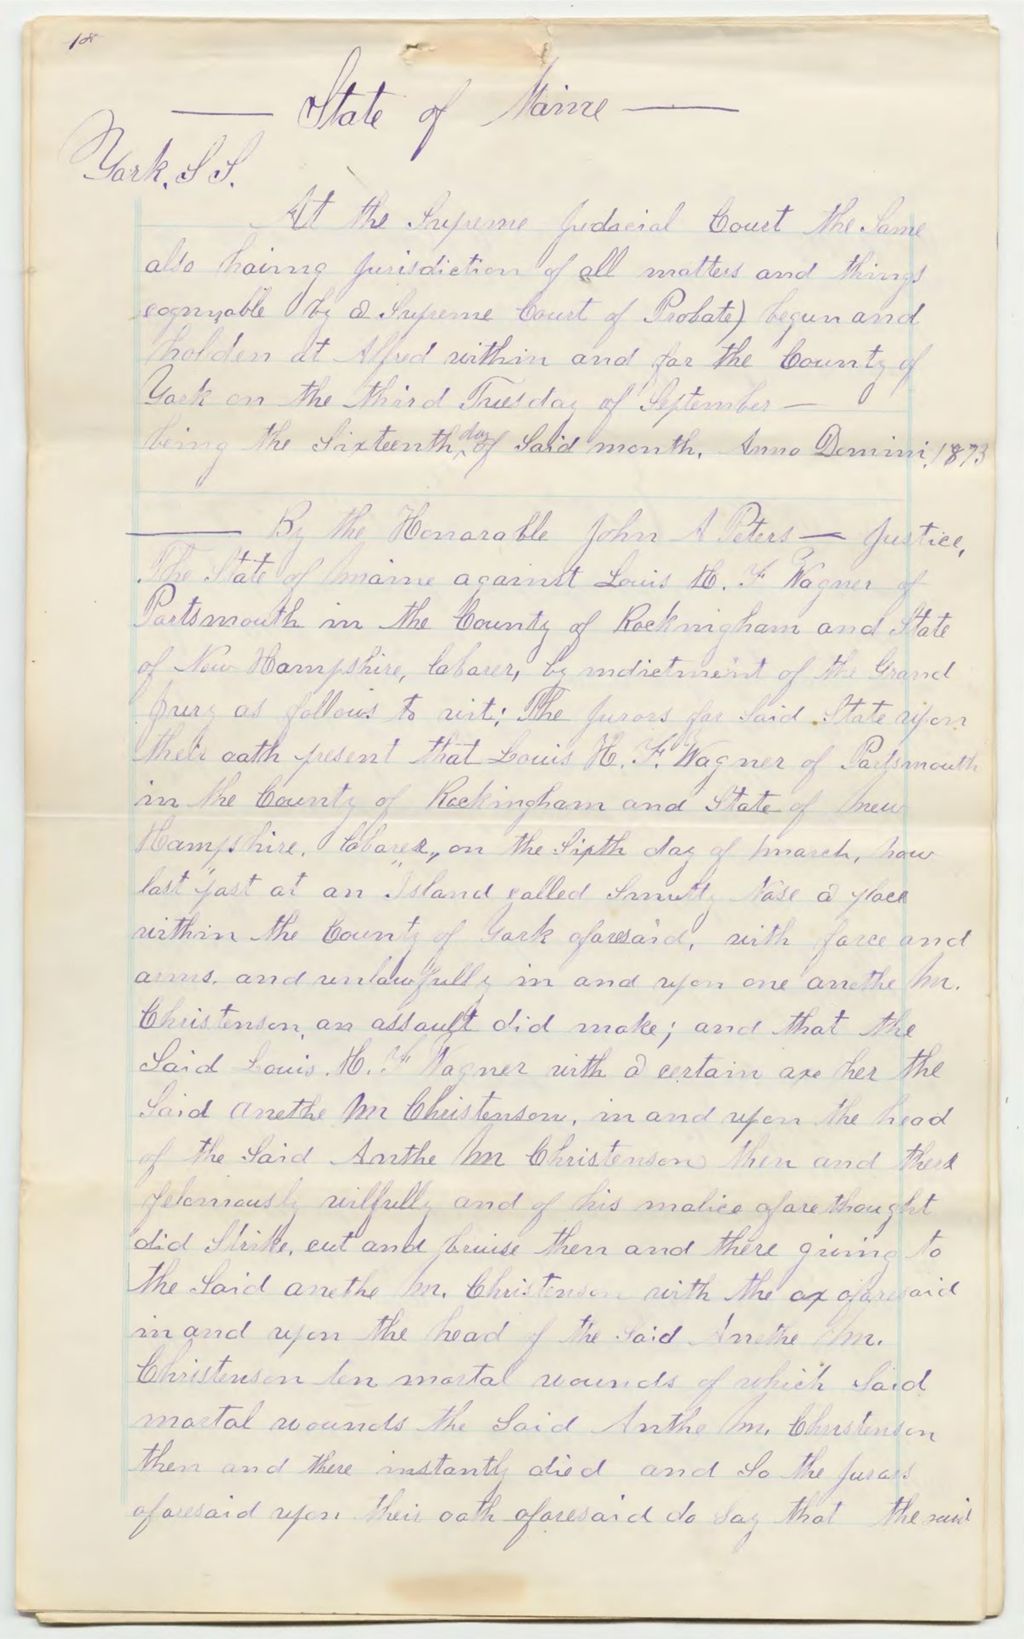 State of Maine
York, S S.
At the Supreme Judicial Court the Same
also having Jurisdiction of all matters and things
cognizable by a Supreme Court of Probate) begun and
holden at Alfred within and for the County of
York on the third Tuesday of September —
being the Sixteenth day of Said month, Anno Domini, 1873
— By the Honorable John A Peters — Justice,
The State of Maine against Louis H. F. Wagner of
Portsmouth in the County of Rockingham and State
of New Hampshire, laborer, by indictment of the Grand
Jury as follows to wit; The Jurors for Said State upon
their oath present that Louis H. F. Wagner of Portsmouth
in the County of Rockingham and State of New
Hampshire, laborer, on the Sixth day of March, now
last past at an Island called Smutty Nose a place
within the County of York aforesaid, with force and
arms, and unlawfully in and upon one anethe M.
Christenson, an assault did make; and that the
Said Louis H. F. Wagner with a certain axe her the
Said Anethe M Christenson, in and upon the head
of the Said Anthe M Christenson then and there
feloniously wilfully and of his malice aforethought
did Strike, cut and bruise then and there giving to
the Said anethe M. Christenson with the ax aforesaid
in and upon the head of the Said Anethe M.
Christenson ten mortal wounds of which Said
mortal wounds the Said Anthe M. Christenson
then and there instantly died and So the Jurors
aforesaid upon their oath aforesaid do Say that the said